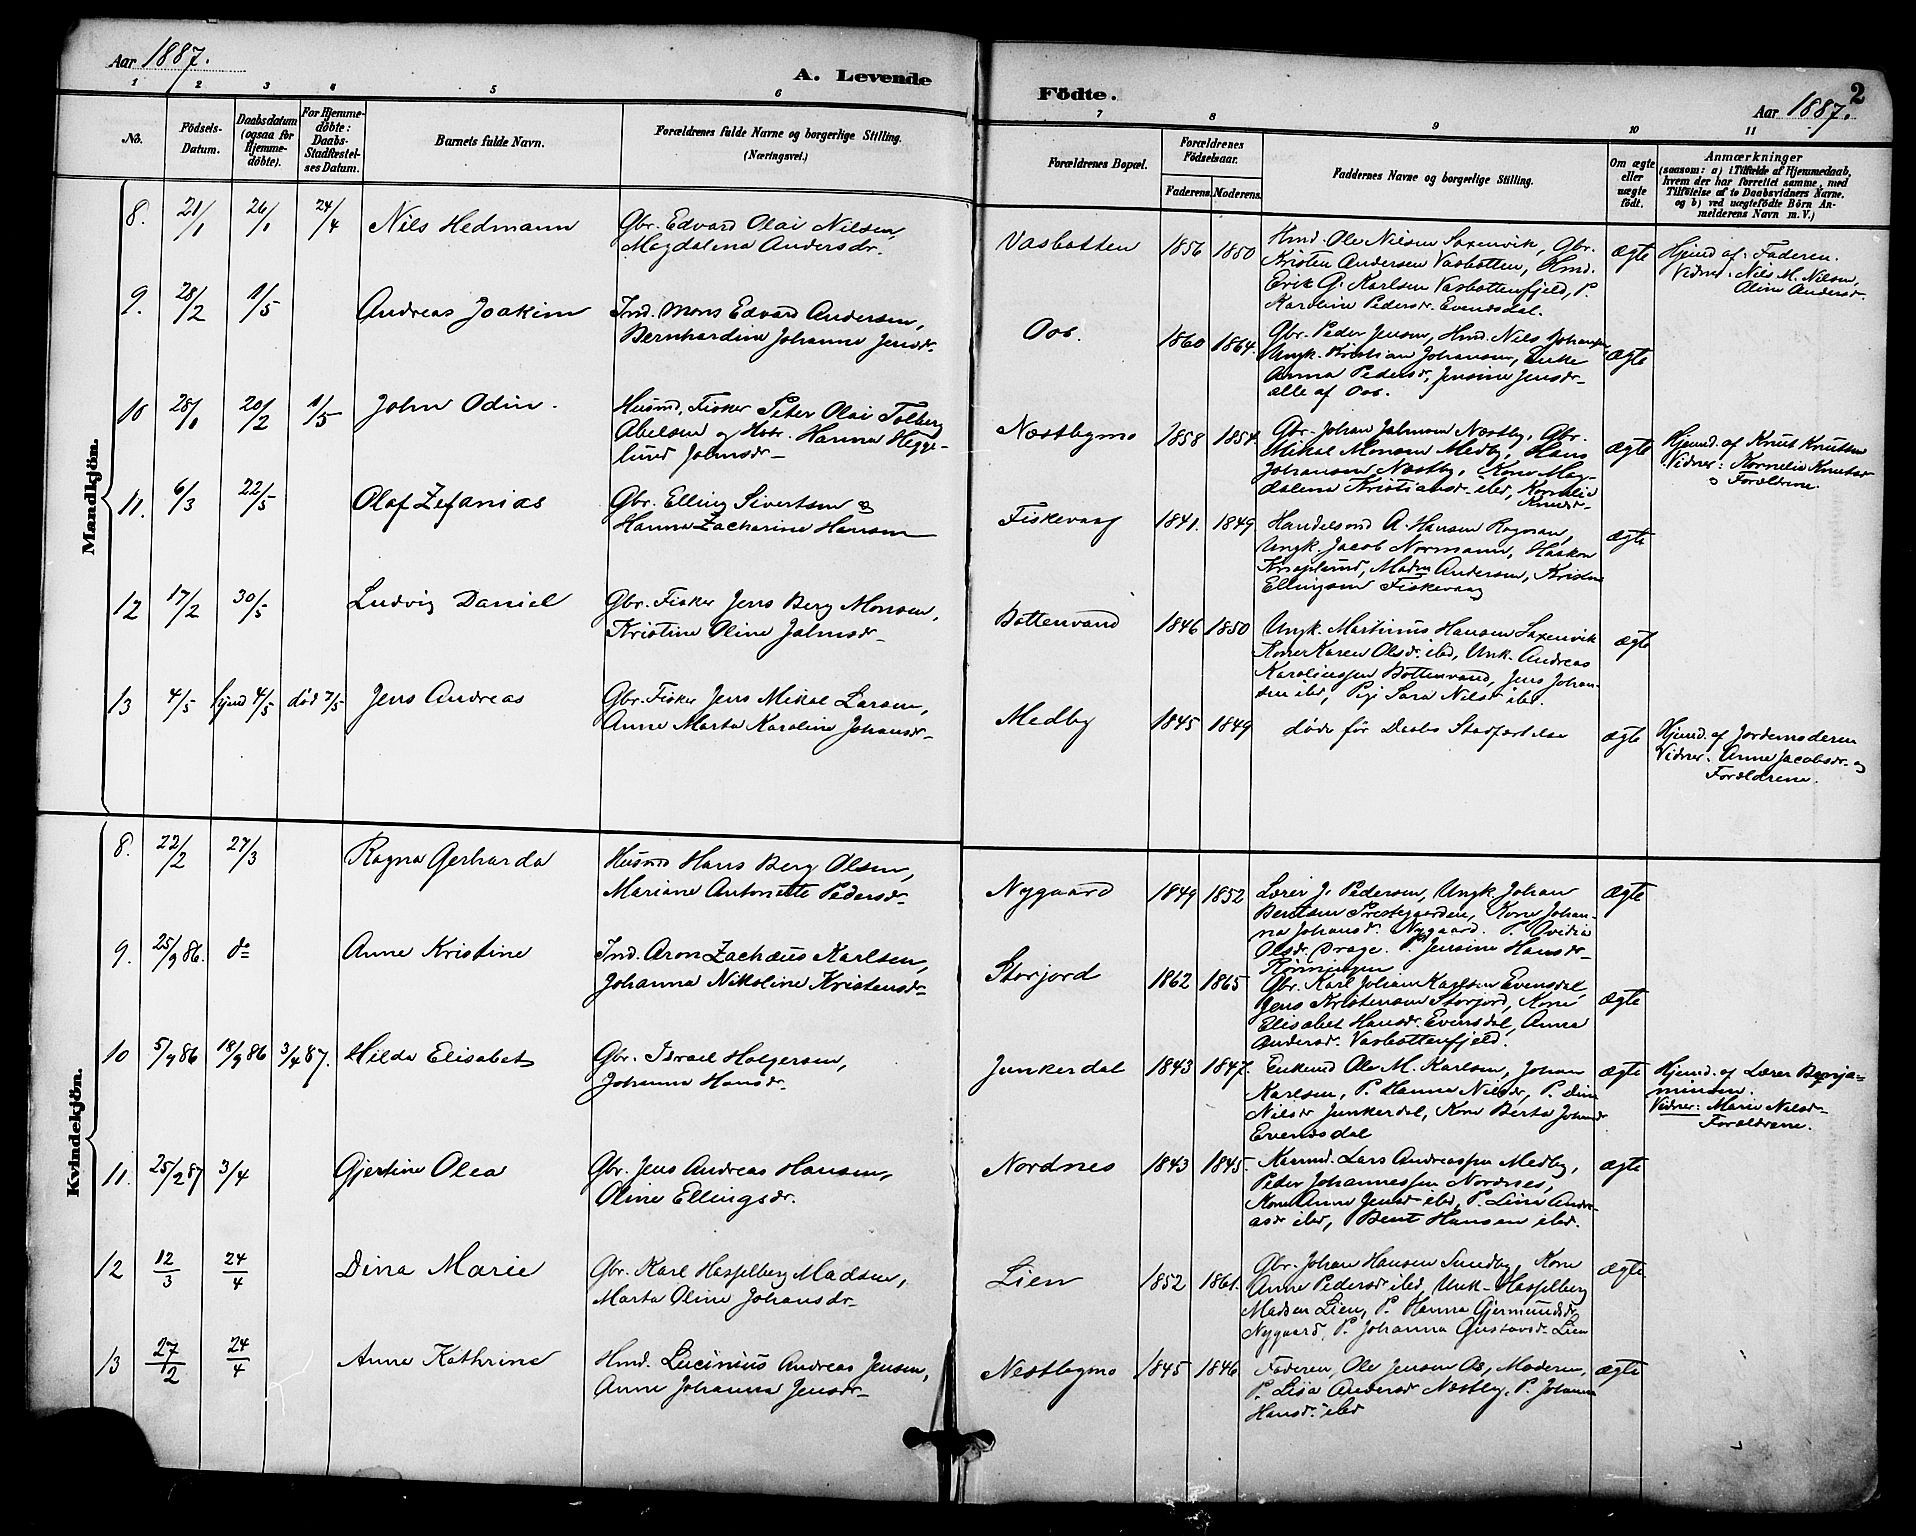 Aar 1887.
A. Levende
Födte.
2
Aar 1887.
1 2 3 4 5 6 7 8 9 10 11
No.
Födsels-Datum.
Daabsdatum (ogsaa for Hjemme-döbte).
For Hjemme-döbte: Daabs-Stadfæstel-ses Datum.
Barnets fulde Navn.
Forældrenes fulde Navne og borgerlige Stilling.
(Næringsvei.)
Forældrenes Bopæl.
Forældrenes Födselsaar.
Faderens. Moderens.
Faddernes Navne og borgerlige Stilling.
Om ægte eller uægte födt.
Anmærkninger
(saasom: a) i Tilfælde af Hjemmedaab, hvem der har forrettet samme, med Tilföielse af to Daabsvidners Navne. og b) ved uægtefödte Börn An-melderens Navn m. V.)
Mandkjön.
8. 21/1 26/1 24/4 Nils Hedmann
Gbr. Edvard Olai Nilsen,
Magdalena Andersdr.
Vasbotten 1856 1850
Hmd. Ole Nilsen Saxenvik, Gbr.
Kristen Andersen Vasbotten, Hmd.
Erik A. Karlsen Vasbottenfjeld, P.
Karoline Pedersdr. Evensdal.
ægte
Hjemd af Faderen.
Vidner: Nils M. Nilsen,
Oline Andersdr.
9. 28/2 1/5 Andreas Joakim
Ind. Mons Edvard Andersen,
Bernhardine Johanna Jensdr.
Oos. 1860 1864.
Gbr. Peder Jensen, Hmd. Nils Johansen
Ungk. Kristian Johansen, Enke
Anna Pedersdr, Jensine Jensdr
alle af Oos.
ægte
10 28/1 20/2 1/5 John Odin.
Husmd, Fisker Peter Olai Tolberg
Abelsen og Hstr. Hanna Hegge-
lund Jalmsdr
Næstbymo 1858 1854.
Gbr. Johan Jalmsen Næstby, Gbr.
Mikal Monsen Medby, Hans
Johansen Næstby, Kone Mag-
dalena Kristiansdr ibd, Kornelia
Knudsdr
ægte
Hjemd. af Knut Knutsen
Vidner: Kornelia Knutsdr
o Forældrene.
11. 6/3 22/5 Olaf Zefanias
Gbr. Elling Sivertsen &
Hanna Zacharine Hansen
Fiskevaag 1841. 1849
Handelsmd A. Hansen Rognan,
Ungk. Jacob Normann, Haakon
Knaplund, Madm Andersen, Kristine
Ellingsen Fiskevaag
ægte
12 17/2 30/5 Ludvig Daniel
Gbr. Fisker Jens Berg Monsen,
Kristine Oline Jalmsdr
Bottenvand 1846 1850
Ungk. Martinus Hansen Saxenvik
Kone Karen Olsdr. ibd, Unk. Andreas
Karoliussen Bottenvand, Jens Johan-
sen ibd, Pige Sara Nilsdr ibd.
ægte
13 4/5 hjmd 4/5 död 7/5 Jens Andreas
Gbr. Fisker Jens Mikal Larsen,
Anne Marta Karoline Johansdr
Medby 1845 1849
døde før Daabs Stadfæstelse
ægte
Hjemd. af Jordemoderen
Vidner: Anne Jacobsdr og
Forældrene.
Kvindekjön.
8. 22/2 27/3 Ragna Gerharda
Husmd Hans Berg Olsen,
Mariane Antonette Pedersdr
Nygaard 1849 1852
Lærer J. Pedersen, Ungk Johan
Bentsen Prestegaarden, Kone Johan-
na Johansdr. Nygaard. P. Ovidia
Olsdr. Drage. P. Jensine Hansdr
ægte
9. 25/9 86. do Anne Kristine
Ind. Aron Zachæus Karlsen,
Johanna Nikoline Kristensdr
Storjord 1862 1865
Gbr. Karl Johan Karlsen Evensdal
Jens Kristensen Storjord, Kone
Elisabet Hansdr. Evensdal, Anna
Andersdr. Vasbottenfjeld.
ægte
10 5/9 86 18/9 86 3/4 87. Hilda Elisabet
Gbr. Israel Holgersen,
Johanna Hansdr
Junkerdal 1843 1847.
Enkemd Ole M. Karlsen, Johan
Karlsen, P. Hanna Nilsdr, P. Dina
Nilsdr Junkerdal, Kone Berta Johansdr
Evensdal
ægte
Hjemd. af Lærer Benja-
minsen
Vidner: Marie Nilsdr
Forældrene.
11. 25/2 87 3/4 Gjertine Olea
Gbr. Jens Andreas Hansen,
Oline Ellingsdr.
Nordnes 1843 1845.
Lars Andreassen Medby,
Peder Johannessen Nordnes,
Kone Anne Jensdr ibd, P. Lina Andre-
asdr ibd, Bent Hansen ibd.
ægte
12 12/3 24/4 Dina Marie
Gbr. Karl Hasselberg Madsen,
Marta Oline Johansdr
Lien 1852 1861.
Gbr. Johan Hansen Sundby, Kone
Anne Pedersdr ibd, Unk. Hasselberg
Madsen Lien, P. Hanna Gjermundsdr
Nygaard, P. Johanna Gustavsdr. Lien
ægte
13 27/2 24/4 Anne Kathrine
Hmd. Lucinius Andreas Jensen,
Anne Johanna Jensdr
Nestbymo 1845 1846
Faderen, Ole Jensen Os, Moderen,
P. Lisa Andersdr Næstby, P. Johanna
Hansdr. ibd
ægte